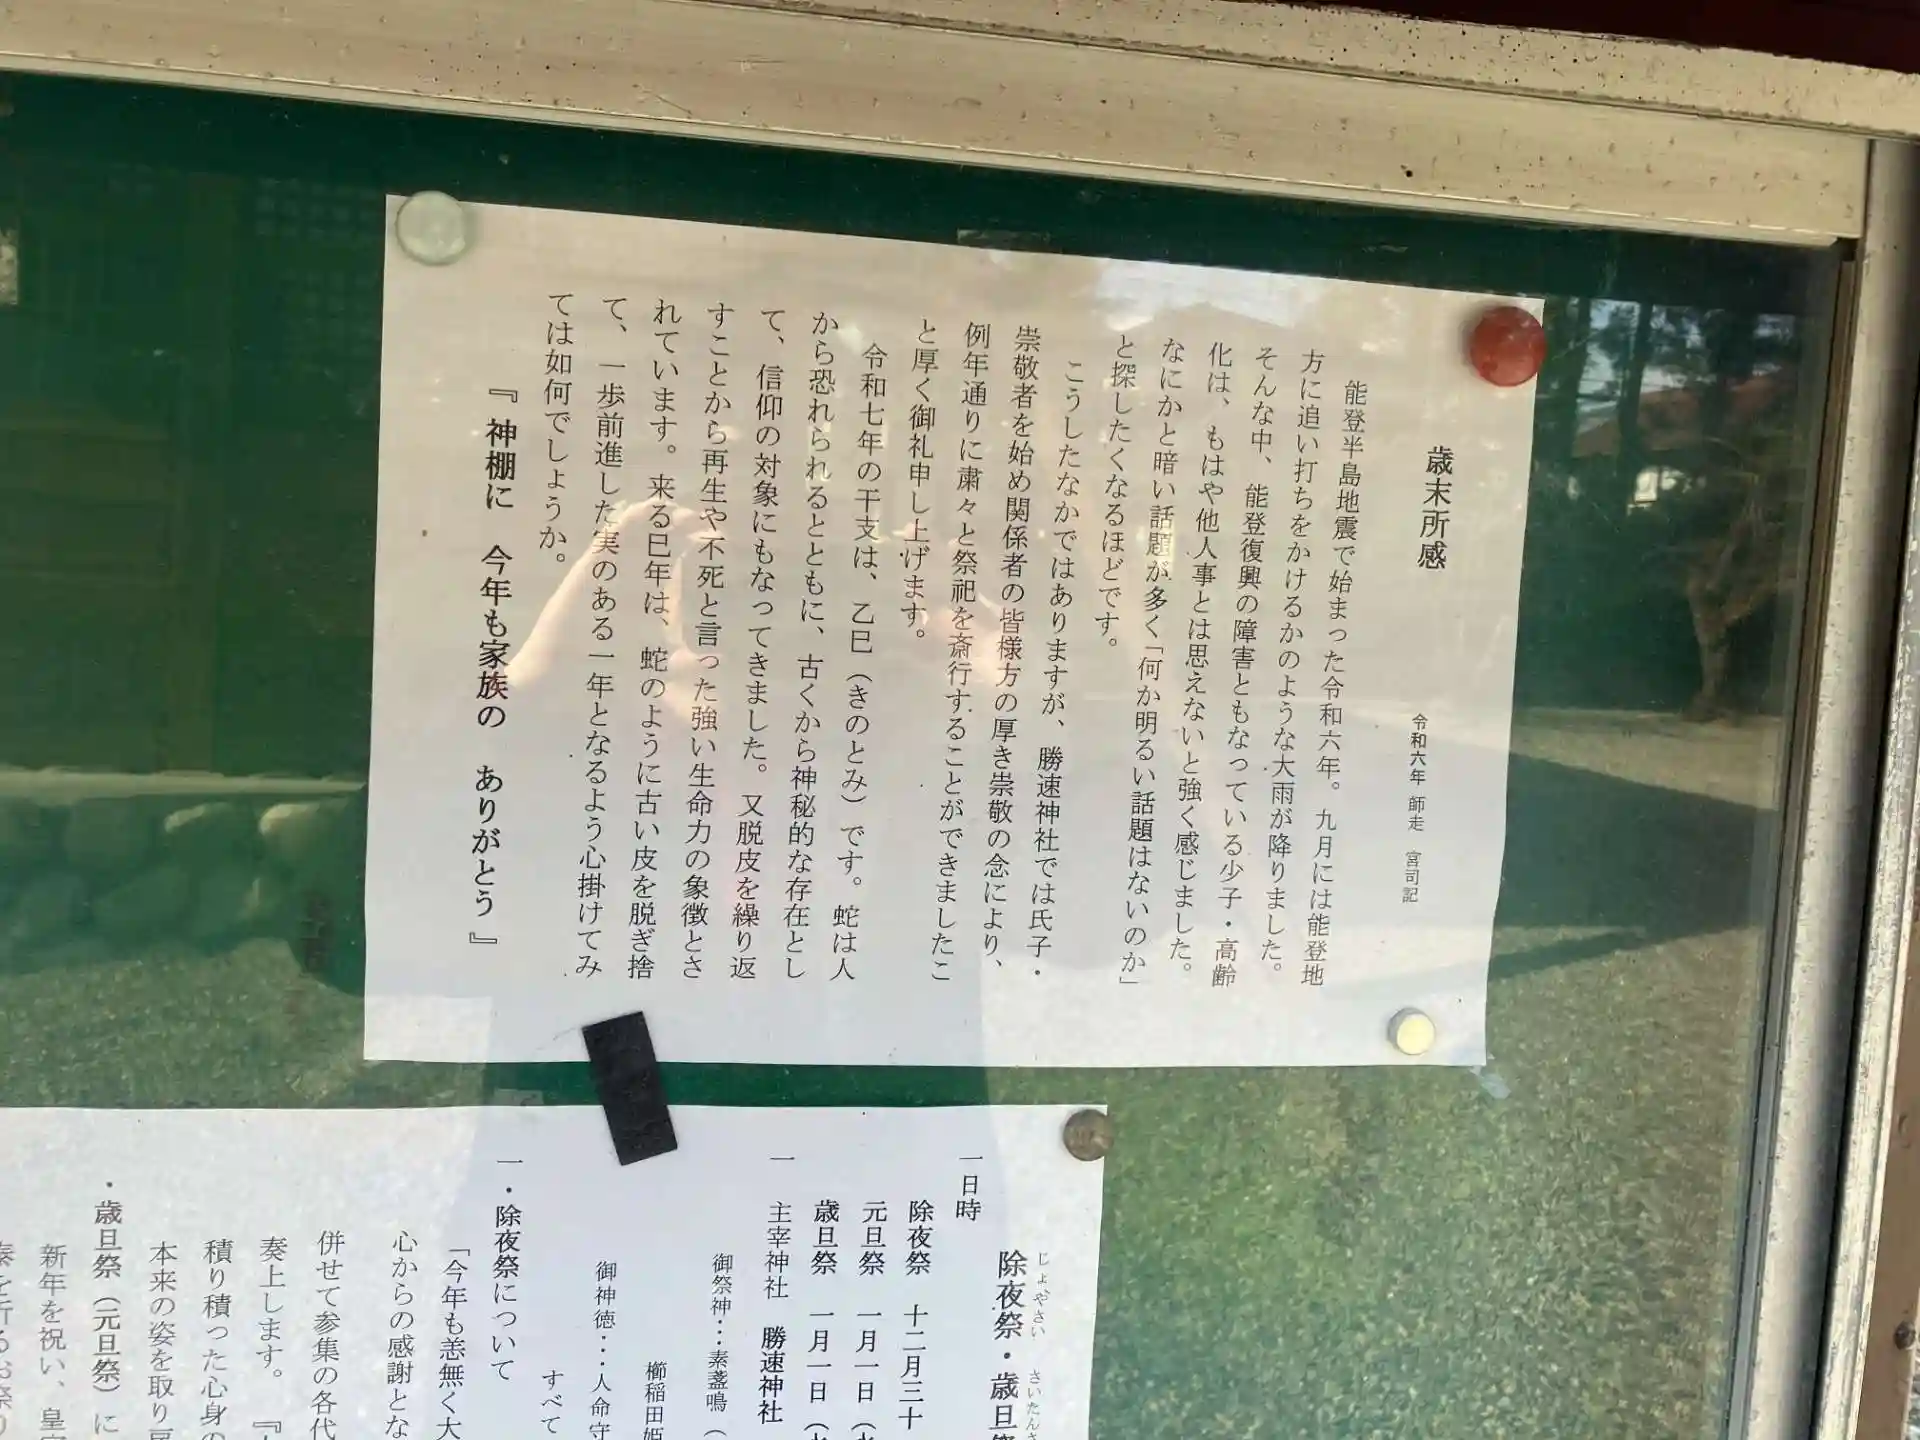 歳末所感
令和六年 師走 宮司記
能登半島地震で始まった令和六年。九月には能登地
方に追い打ちをかけるかのような大雨が降りました。
そんな中、能登復興の障害ともなっている少子・高齢
化は、もはや他人事とは思えないと強く感じました。
なにかと暗い話題が多く「何か明るい話題はないのか」
と探したくなるほどです。
こうしたなかではありますが、勝速神社では氏子・
崇敬者を始め関係者の皆様方の厚き崇敬の念により、
例年通りに粛々と祭祀を斎行することができましたこ
と厚く御礼申し上げます。
令和七年の干支は、乙巳（きのとみ）です。蛇は人
から恐れられるとともに、古くから神秘的な存在とし
て、信仰の対象にもなってきました。又脱皮を繰り返
すことから再生や不死と言った強い生命力の象徴とさ
れています。来る巳年は、蛇のように古い皮を脱ぎ捨
て、一歩前進した実のある一年となるよう心掛けてみ
ては如何でしょうか。
『神棚に 今年も家族の ありがとう』
じょやさい さいたんさ
除夜祭・歳旦祭
一日時
除夜祭 十二月三十
元旦祭 一月一日（
歳旦祭 一月一日（
一 主宰神社 勝速神社
御祭神・・・素盞鳴（
櫛稲田姫
御神徳・・・人命守
すべて
一・除夜祭について
「今年も恙無く大
心からの感謝とな
併せて参集の各代
奏上します。『
積り積った心身の
本来の姿を取り戻
・歳旦祭（元旦祭）に
新年を祝い、皇
泰を祈るお祭り